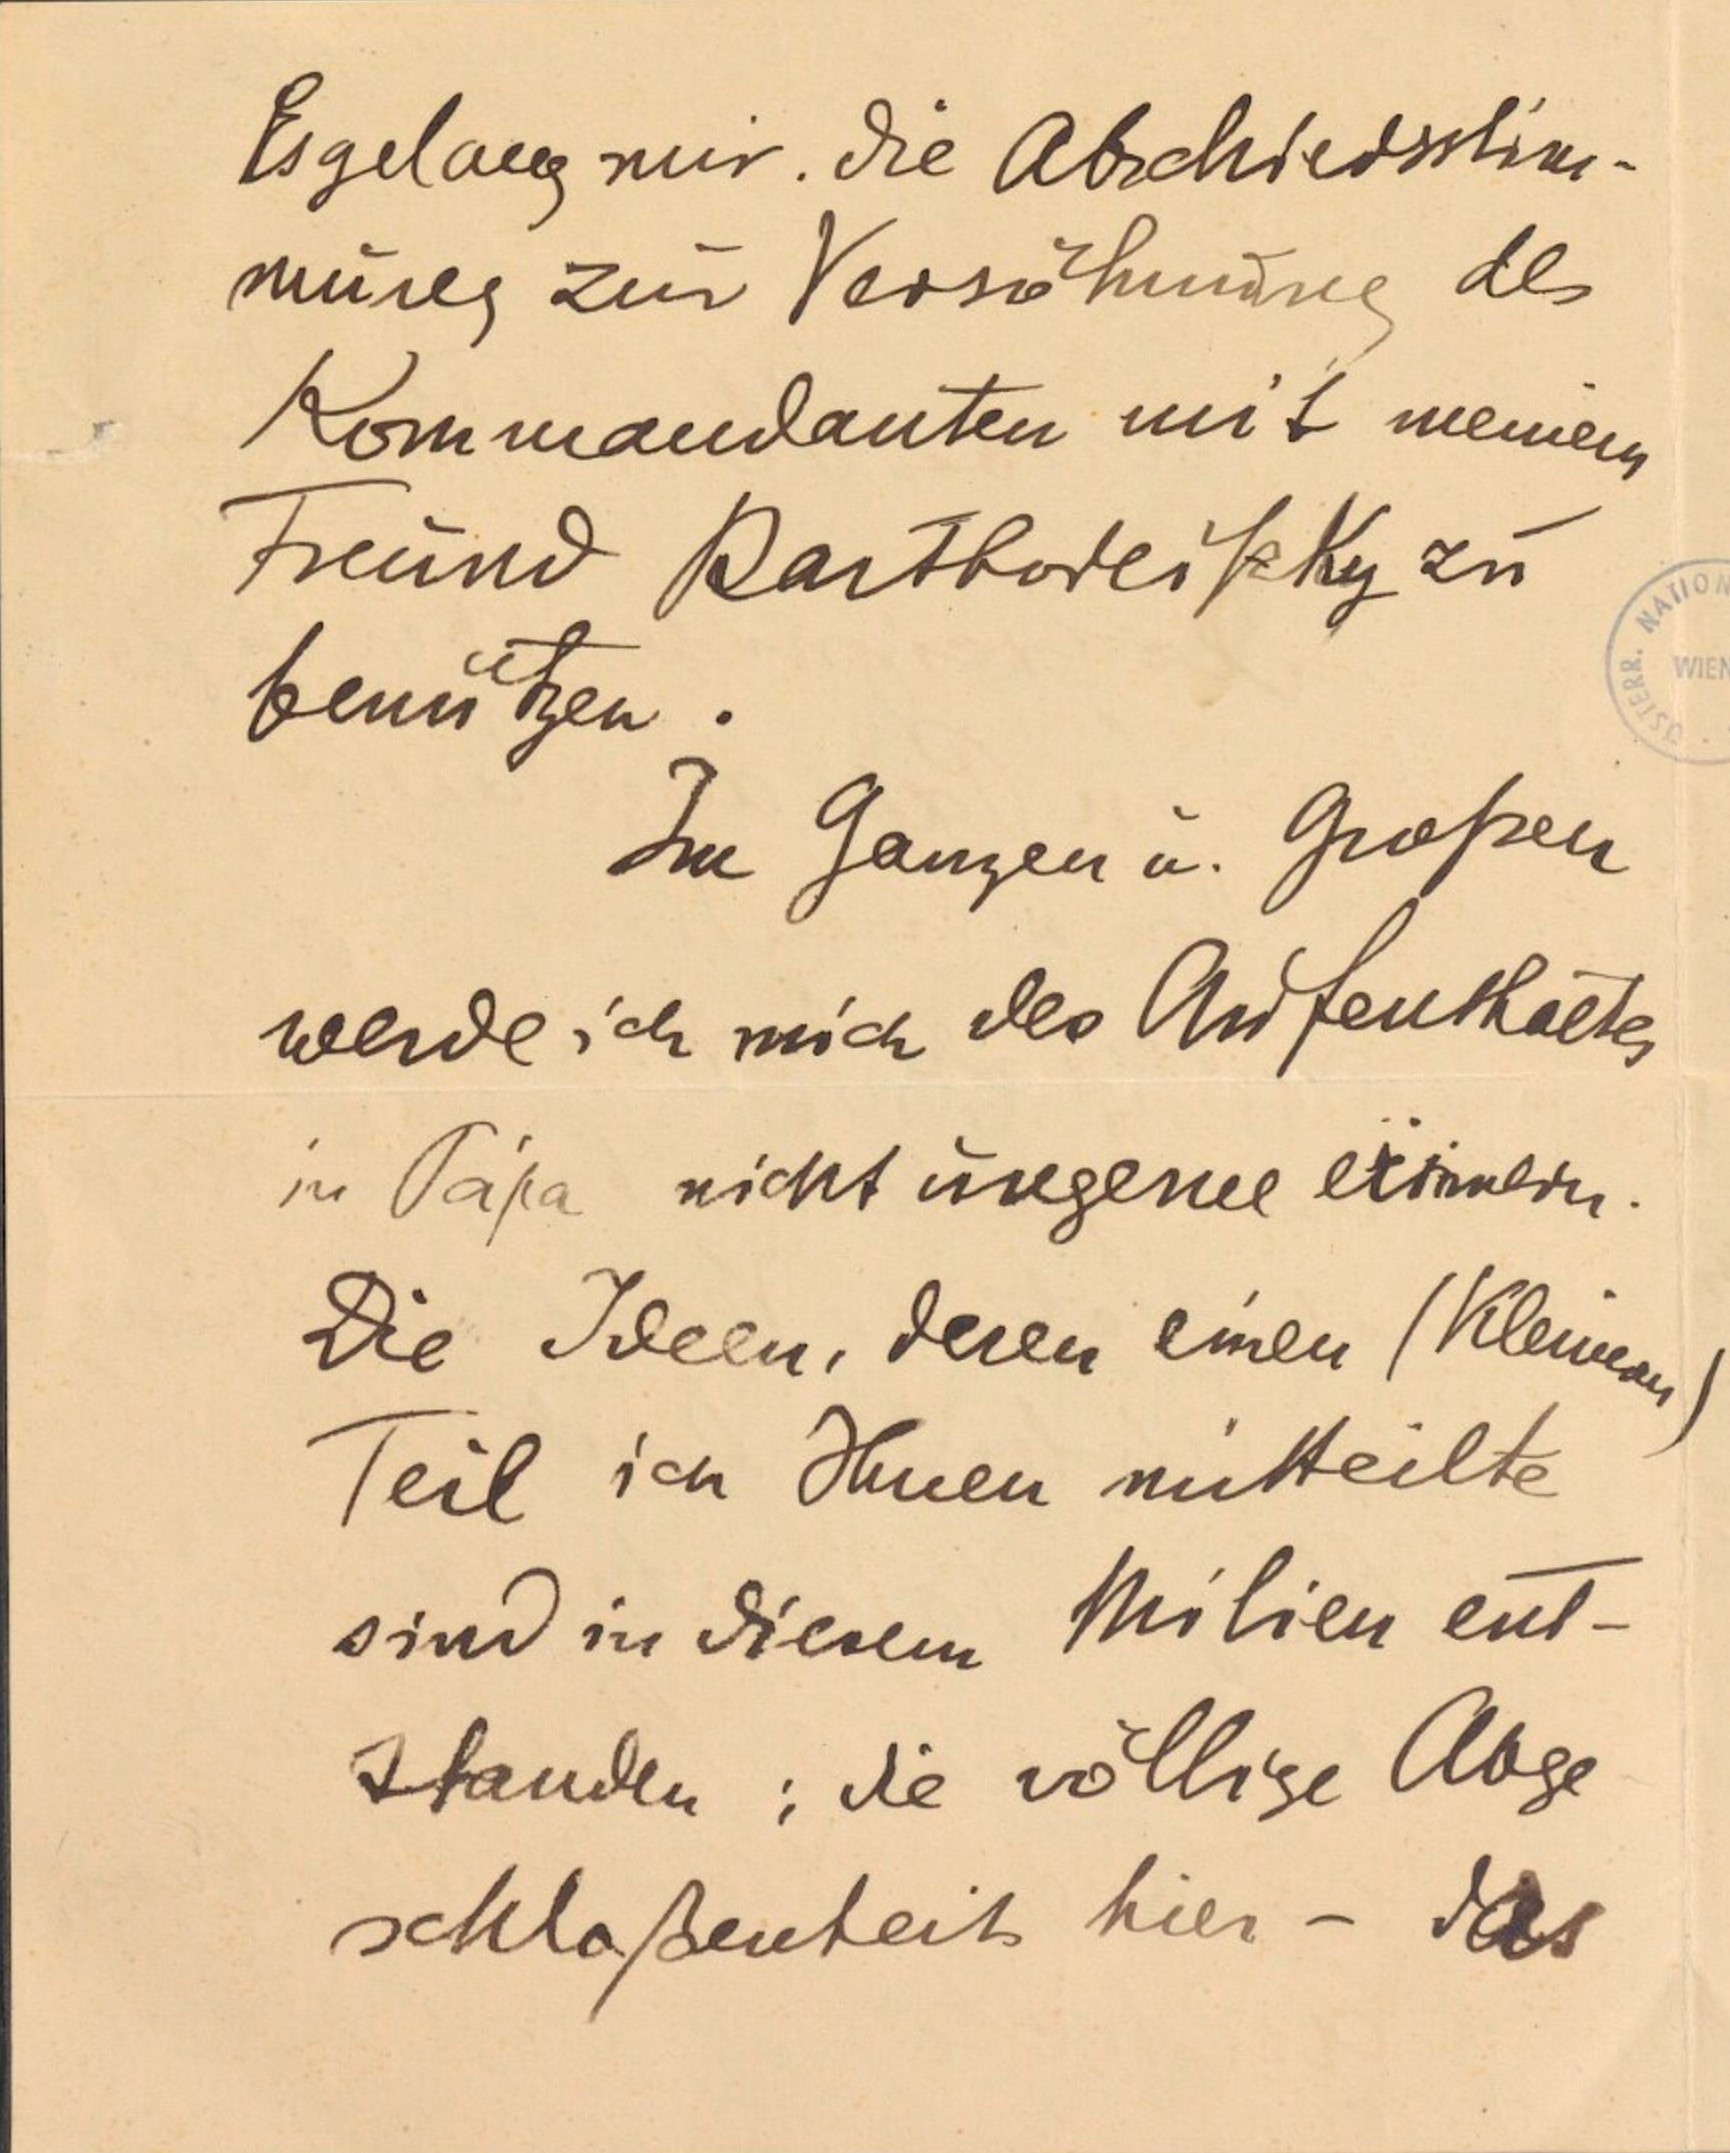 Es gelang mir. die Abschiedsstim-
mung zur Versöhnung des
Kommandanten mit meinem
Freund Barthodeißky zu
benützen.
Im Ganzen u. Großen
werde ich mich des Aufenthaltes
in Pápa nicht ungerne erinnern.
Die Ideen, deren einen (kleinen)
Teil ich Ihnen mitteilte
sind in diesem Milieu ent-
standen; die völlige Abge
schloßenheit hier – das
ÖSTERR. NATION
WIEN